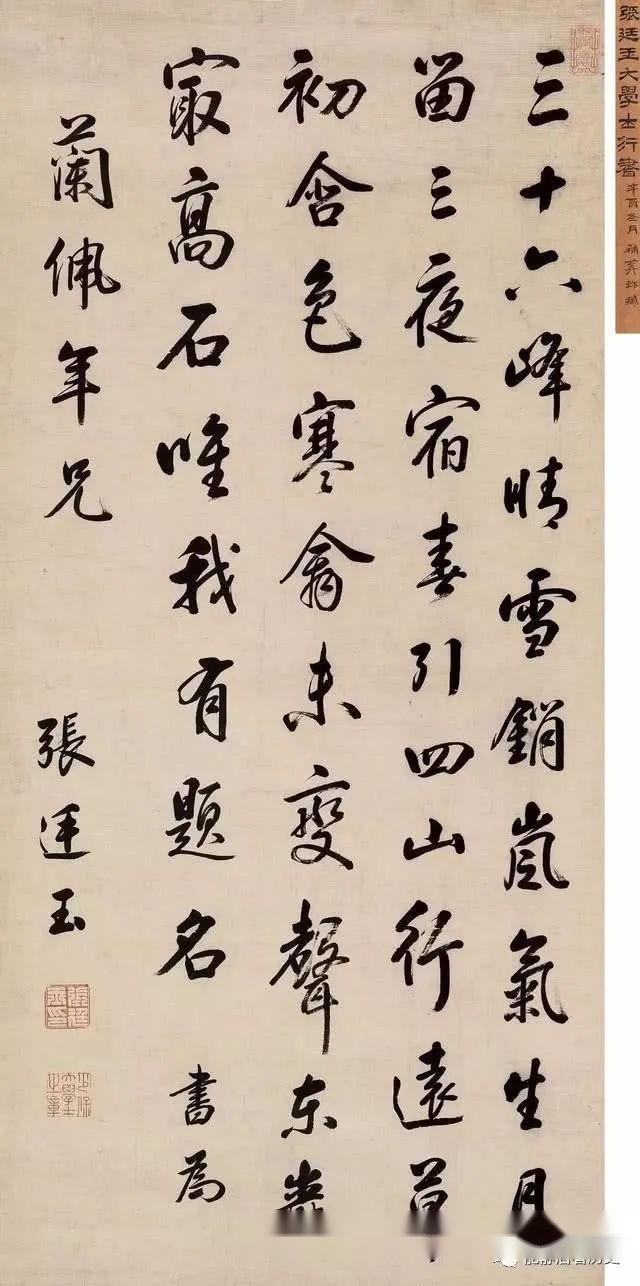 張廷玉大學士行書
辛酉冬月 珍藏
三十六峰晴雪銷嵐氣生月
留三夜宿春引四山行遠草
初含色寒禽未變聲東岩
最高石唯我有題名 書為
蘭佩年兄
張廷玉